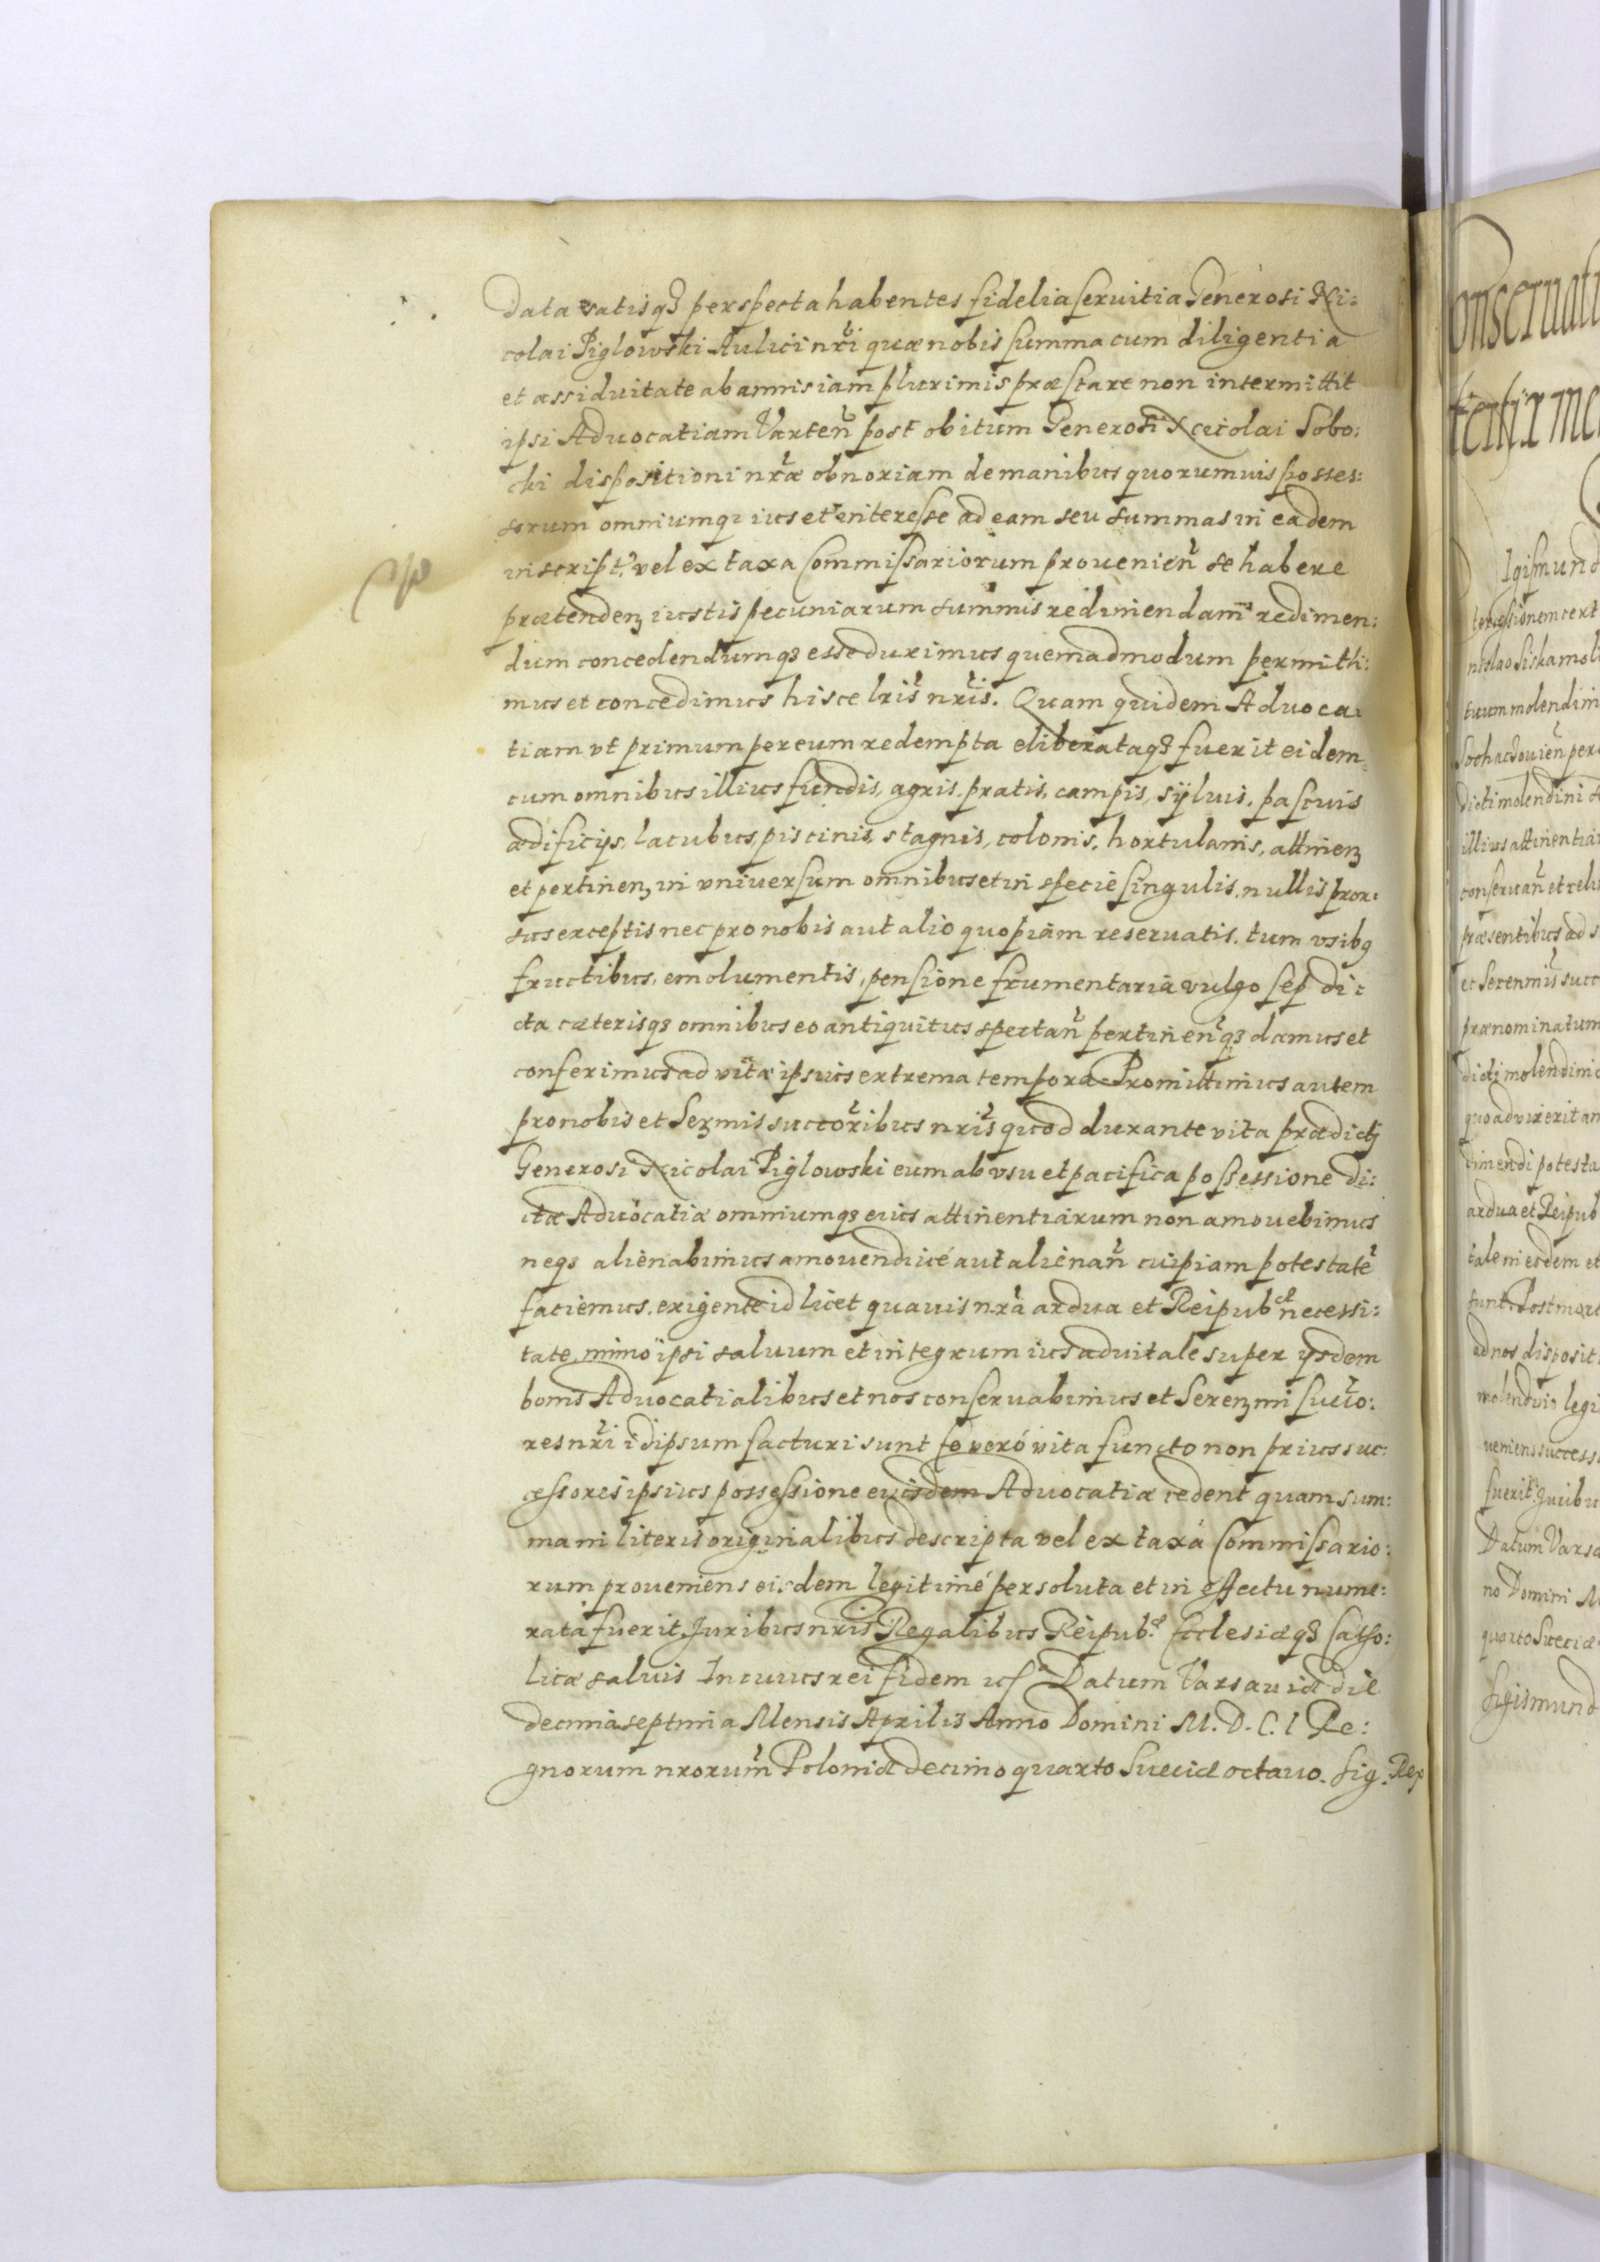 data satisq3 perspecta habentes fidelia seruitia Generosi Ni:
colai Piglowski Aulici nri quæ nobis summa cum diligentia
et assiduitate ab annis iam plurimis præstare non intermittit
ipsi Aduocatiam Varten post obitum Generosi Nicolai Sobo:
cki dispositioni nræ obnoxiam de manibus quorumuis posses:
sorum omniumq3 ius et interesse ad eam seu summas in eadem
inscript. vel ex taxa Commissariorum prouenien se habere
prætenden3 iustis pecuniarum summis redimendam redimen:
dum concedendumq3 esse duximus quemadmodum permitti:
mus et concedimus hisce lris nris. Quam quidem Aduoca:
tiam vt primum per eum redempta eliberataq3 fuerit eidem
cum omnibus illius fundis, agris, pratis, campis, syluis, pascuis
ædificijs, lacubus, piscinis, stagnis, colonis, hortulanis, attinen3
et pertinen3 in vniuersum omnibus et in specie singulis, nullis pror:
sus exceptis nec pro nobis aut alio quopiam reseruatis, tum vsib9
fructibus, emolumentis, pensione frumentaria vulgo sep di:
cta cæterisq3 omnibus eo antiquitus spectan pertinenq3 damus et
conferimus ad vitæ ipsius extrema tempora. Promittimus autem
pro nobis et Ser3mis succoribus nris quod durante vita prædicti
Generosi Nicolai Piglowski eum ab vsu et pacifica possessione di:
ctæ Aduocatiæ omniumq3 eius attinentiarum non amouebimus
neq3 alienabimus amouendiué aut alienan cuipiam potestate
faciemus, exigente id licet quauis nra ardua et Reipub necessi:
tate, immo ipsi saluum et integrum ius aduitale super ijsdem
bonis Aduocatialibus et nos conseruabimus et Seren3mi succo:
res nri idipsum facturi sunt eo veró vita functo non prius suc:
cessores ipsius possessione eiusdem Aduocatiæ cedent quam sum:
ma in literis originalibus descripta vel ex taxa Commissario:
rum proueniens eisdem legitimé persoluta et in effectu nume:
rata fuerit. Juribus nris Regalibus Reipub. Ecclesiæq3 Catho:
licæ saluis In cuius rei fidem Datum Varsauiæ die
decima septima Mensis Aprilis Anno Domini M. D. C. I Re:
gnorum nrorum Poloniæ decimo quarto Sueciæ octauo. Sig. Rex